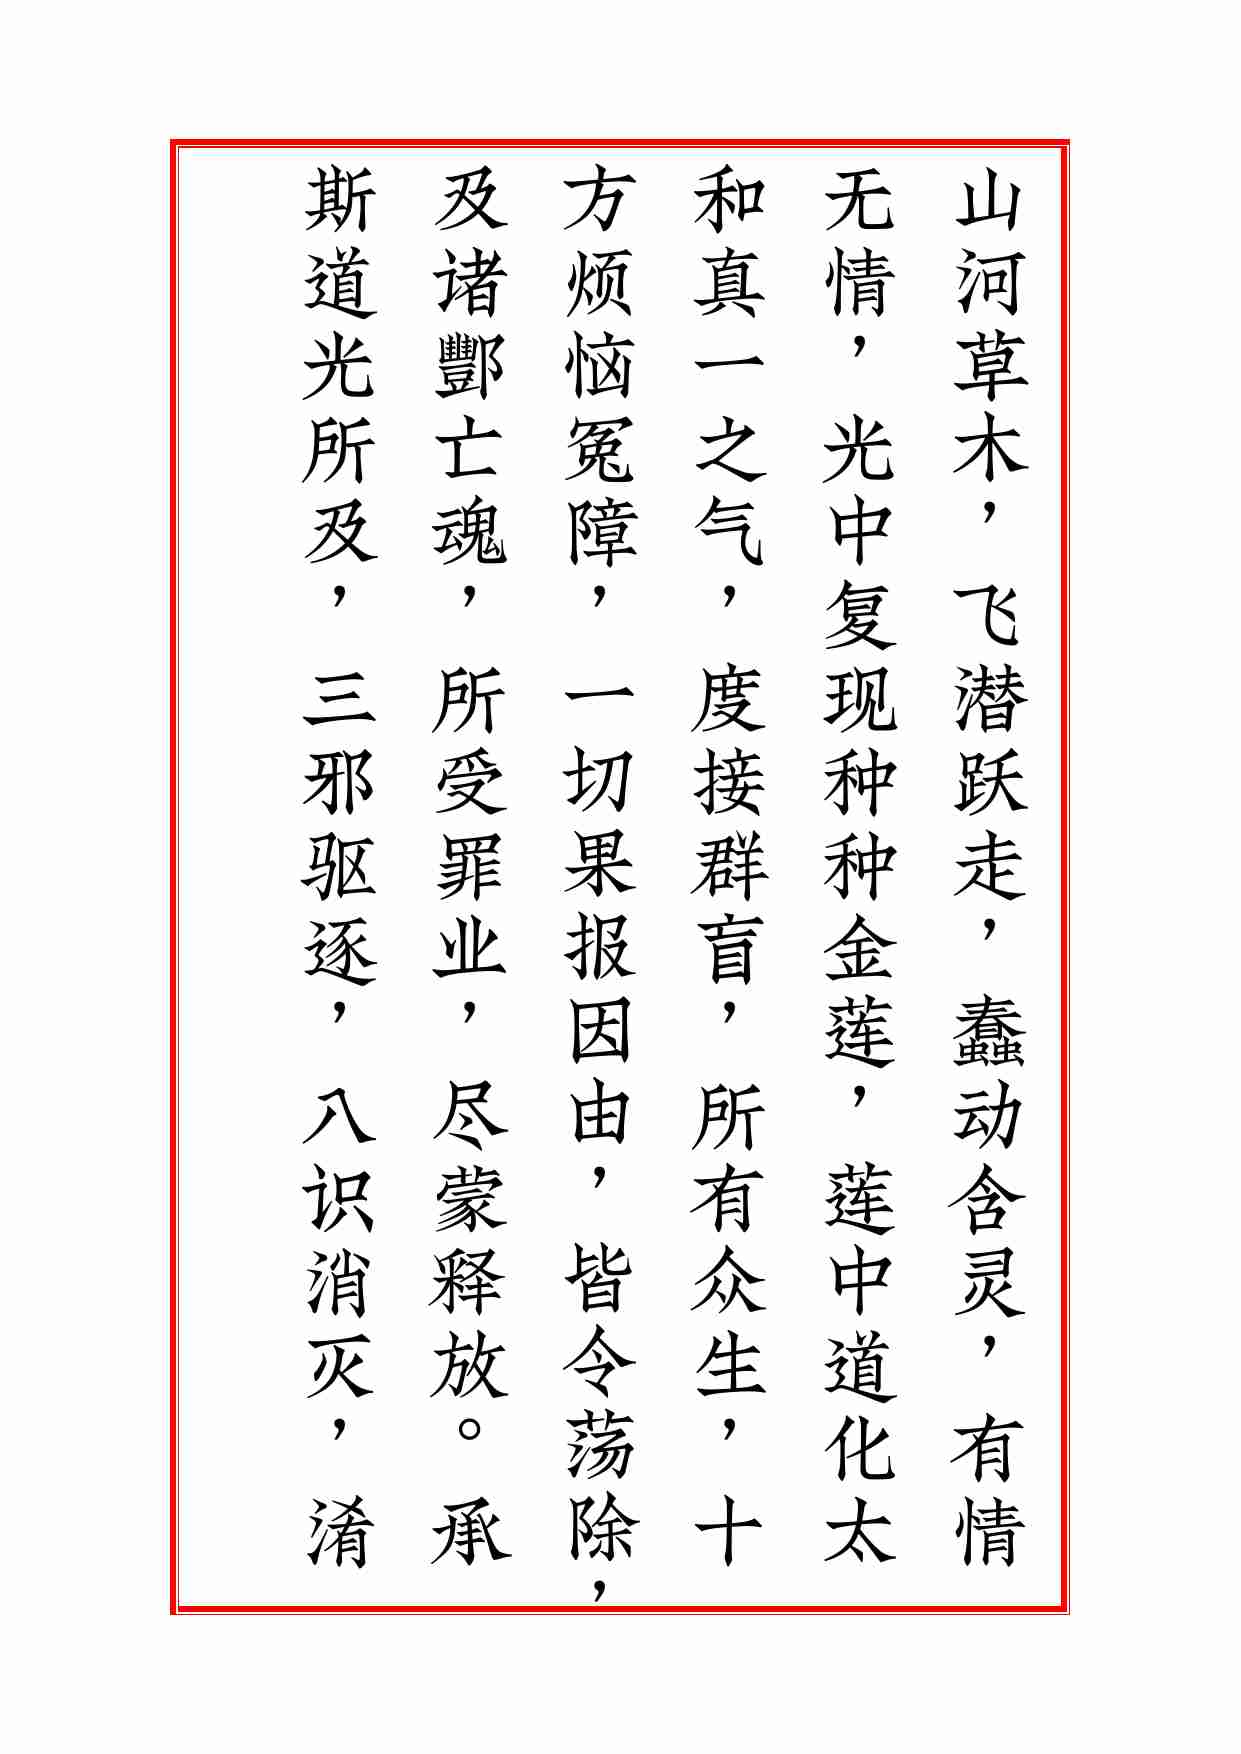 山河草木，飞潜跃走，蠢动含灵，有情
无情，光中复现种种金莲，莲中道化太
和真一之气，度接群盲，所有众生，十
方烦恼冤障，一切果报因由，皆令荡除，
及诸酆亡魂，所受罪业，尽蒙释放。承
斯道光所及，三邪驱逐，八识消灭，淆